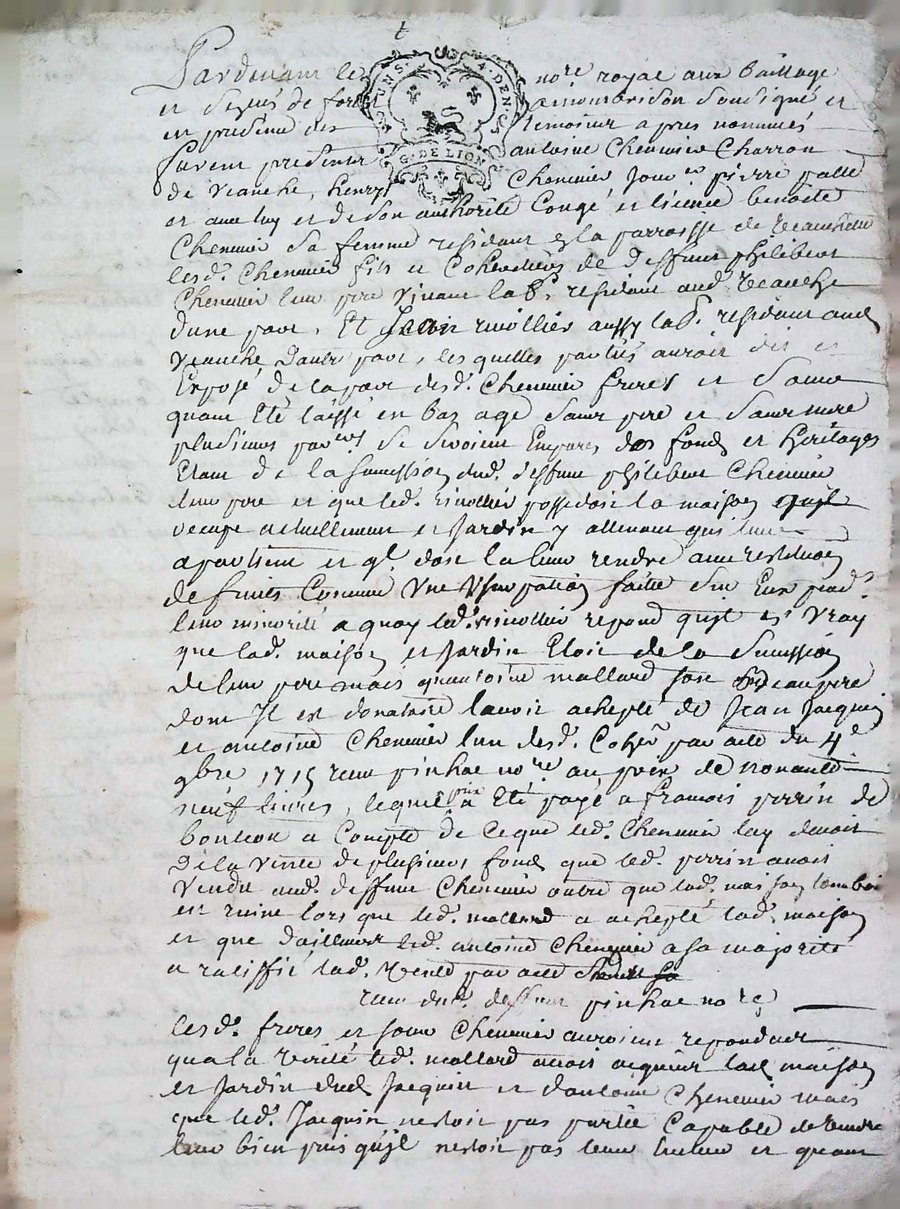 Pardevant le nore royal aux bailliage
et de forest a montbrison soussigné et
en presence des temoins apres nommés
furent presents antoine Chennier Charron
de veauche, henry Chennier pierre
et avec luy et de son authorité Congé et licence benoite
Chennier sa femme residant en la parroisse de
lesd. Chennier fils et Coheritiers de deffunt philibert
Chennier leur pere vivant lab. residant aud. veauche
dune part, Et Jean rivollier aussy lab. residant aud.
veauche, dautre part, lesquelles parties auroit dit et
Exposé de la part desd. Chennier freres et soeur
quaiant Eté laissé en bas age sans pere et sans mere
plusieurs se seroient Emparés des fonds et heritages
Etant de la succession dud. deffunt philibert Chennier
leur pere et que led. rivollier possedoit la maison quil
occupe actuellement et Jardin y attenant qui leur
apartient et ql doit la leur rendre avec restitution
de fruits Comme Une Usurpation faitte sur Eux pend.
leur minorité a quoy led. rivollier repond quil est vray
que lad. maison et Jardin Etoit de la succession
de leur pere mais quantoine mallard son beaupere
dont Il est donataire lavoit achepté de Jean Jacquin
et antoine Chennier lun desd. Coher. par acte du 4e
9bre 1715 receu pinhac nore au prix de nonante
neuf livres, lequel prix a Eté payé a francois perrin de
bontheon a Compte de ce que led. Chennier luy devoit
De la vente de plusieurs fonds que led. perrin avoit
vendu aud. deffunt Chennier outre que lad. maison tomboit
en ruine lors que led. mallard a achepté lad. maison
et que dailleurs led. antoine Chennier a sa majorité
a ratiffié lad. vente par acte
receu dud. deffunt pinhac nore
lesd. freres et soeur Chennier auroient repondu
qua la verité led. mallard avoit acquis lad. maison
et Jardin dud. Jacquin et dantoine Chennier mais
que led. Jacquin nestoit pas partie Capable de vendre
leur bien puis quil nestoit pas leur tuteur et quant
G. DE LION